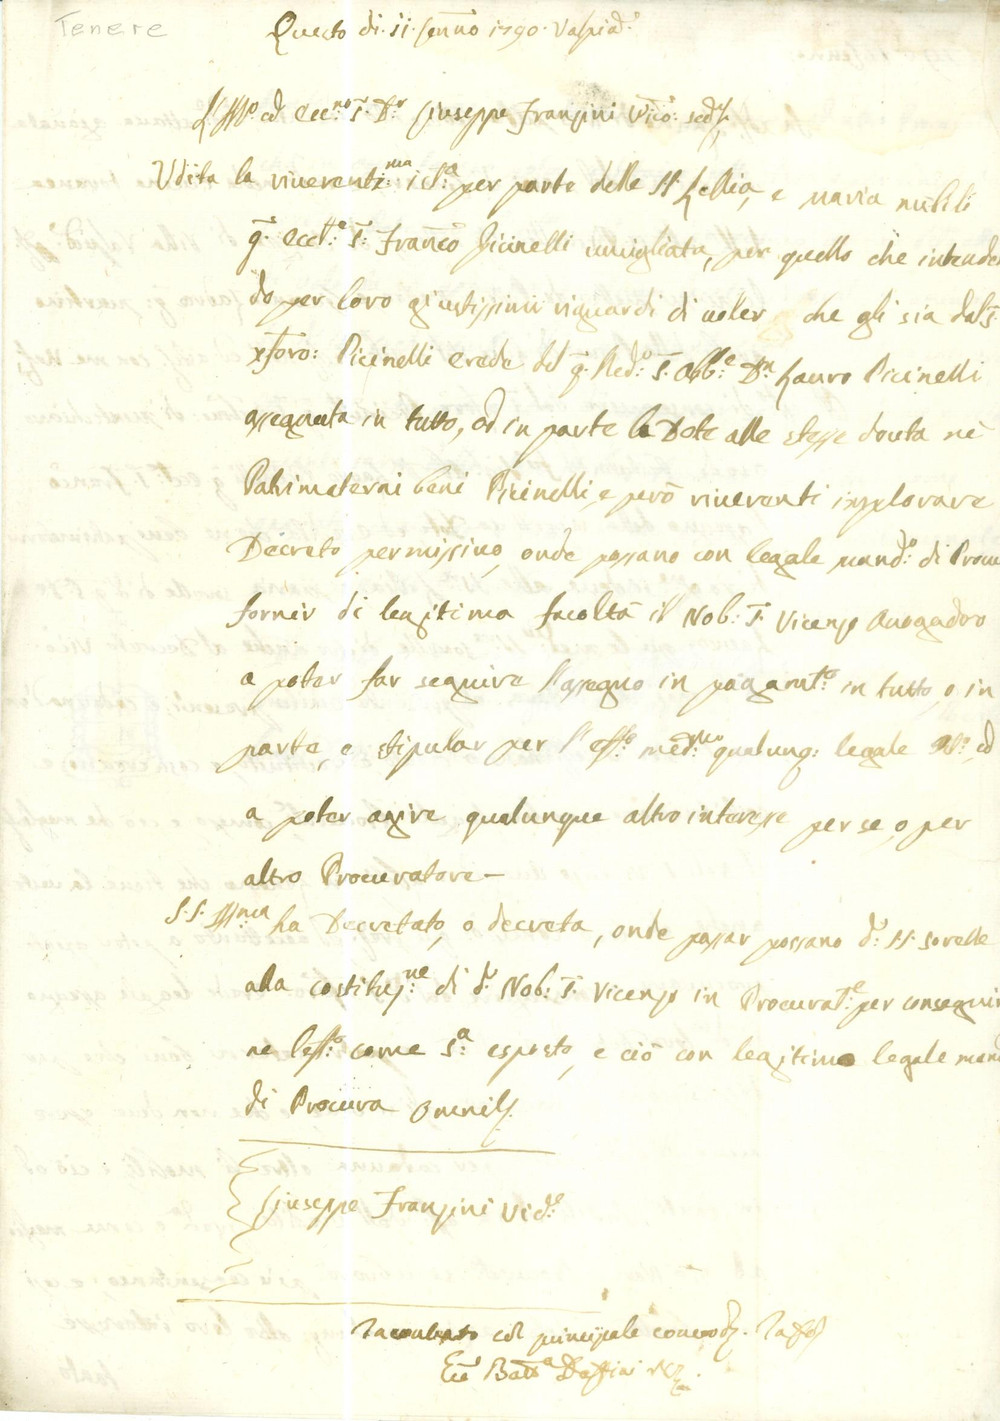 Tenere
Questo dì 11 Genno 1790. Valpiad:
L'Illmo ed Ecc:mo S:r D:r Giuseppe Franzini Vico:
Udita la riverentis:ma ista: per parte delle SS: Lellia, e Maria nubili
q: Ecclte S: Franco Picinelli umigliata, per quello che intenden
do per loro giustissimi riguardi di voler che gli sia dal S:
Xforo: Picinelli erede del q: Redo: S: Abbe: Dn Lauro Picinelli
assegnata in tutto, od in parte la Dote alle stesse douta ne
Patrimaterni beni Picinelli, e però riverenti implorare
Decreto permissivo, onde possano con legale mando: di Procu
fornir di legitima facoltà il Nob: S: Vicenzo Avogadro
a poter far seguire l'assegno in pagamto: in tutto, o in
parte, e stipular per l'effo: medmo qualunq: legale ed
a poter agire qualunque altro interesse per se, o per
altro Procuratore —
S. S. Illma ha Decretato, e decreta, onde passar possano de: SS: sorelle
alla costituzne: di do: Nob: S: Vicenzo in Procurate: per conseguir
ne l'effo: come sa: esposto, e ciò con legitimo legale mand
di Procura Omni
Giuseppe Franzini Vico:
col principale
Batta